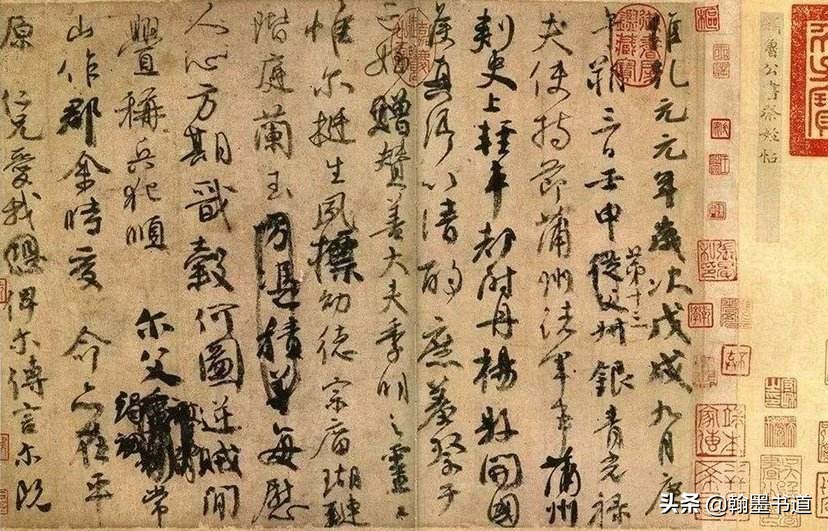 顏魯公書祭姪帖
維乾元元年歲次戊戌九月庚
午朔三日壬申第十三從父叔銀青光祿
夫使持節蒲州諸軍事蒲州
刺史上輕車都尉丹楊縣開國
侯真卿以清酌庶羞祭于
亡姪贈贊善大夫季明之靈曰
惟爾挺生夙標幼德宗廟瑚璉
階庭蘭玉方憑積善每慰
人心方期戩穀何圖逆賊間
釁稱兵犯順 爾父竭誠常
山作郡余時受命亦在平
原仁兄愛我俾爾傳言爾既
头条 @翰墨书道